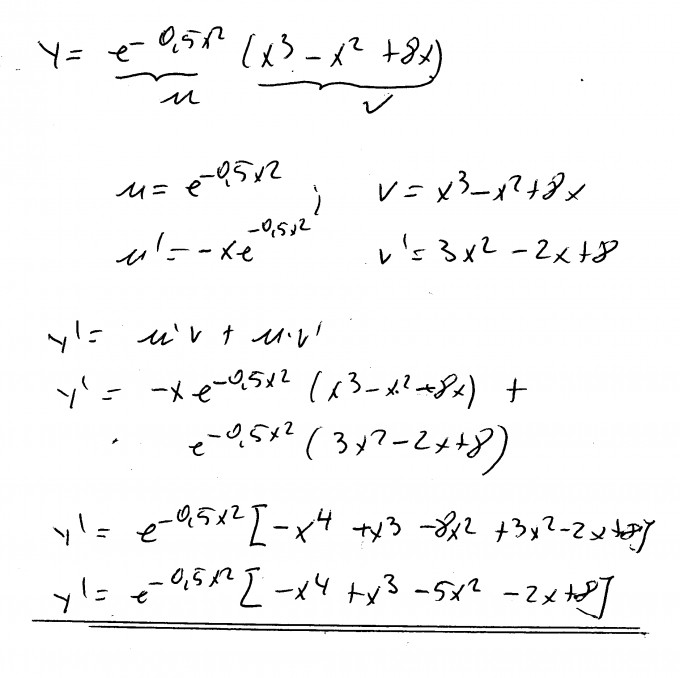 y = e^{-0,5x^2} (x^3 - x^2 + 8x)
u v
u = e^{-0,5x^2} ; v = x^3 - x^2 + 8x
u' = -xe^{-0,5x^2} v' = 3x^2 - 2x + 8
y' = u'v + u·v'
y' = -xe^{-0,5x^2} (x^3 - x^2 + 8x) +
e^{-0,5x^2} (3x^2 - 2x + 8)
y' = e^{-0,5x^2} [-x^4 + x^3 - 8x^2 + 3x^2 - 2x + 8]
y' = e^{-0,5x^2} [-x^4 + x^3 - 5x^2 - 2x + 8]